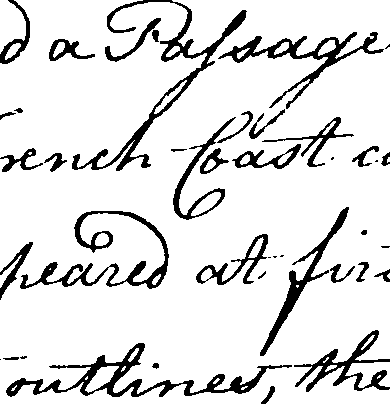 d a Passage
rench Coast co
peared at fir
outlines, the